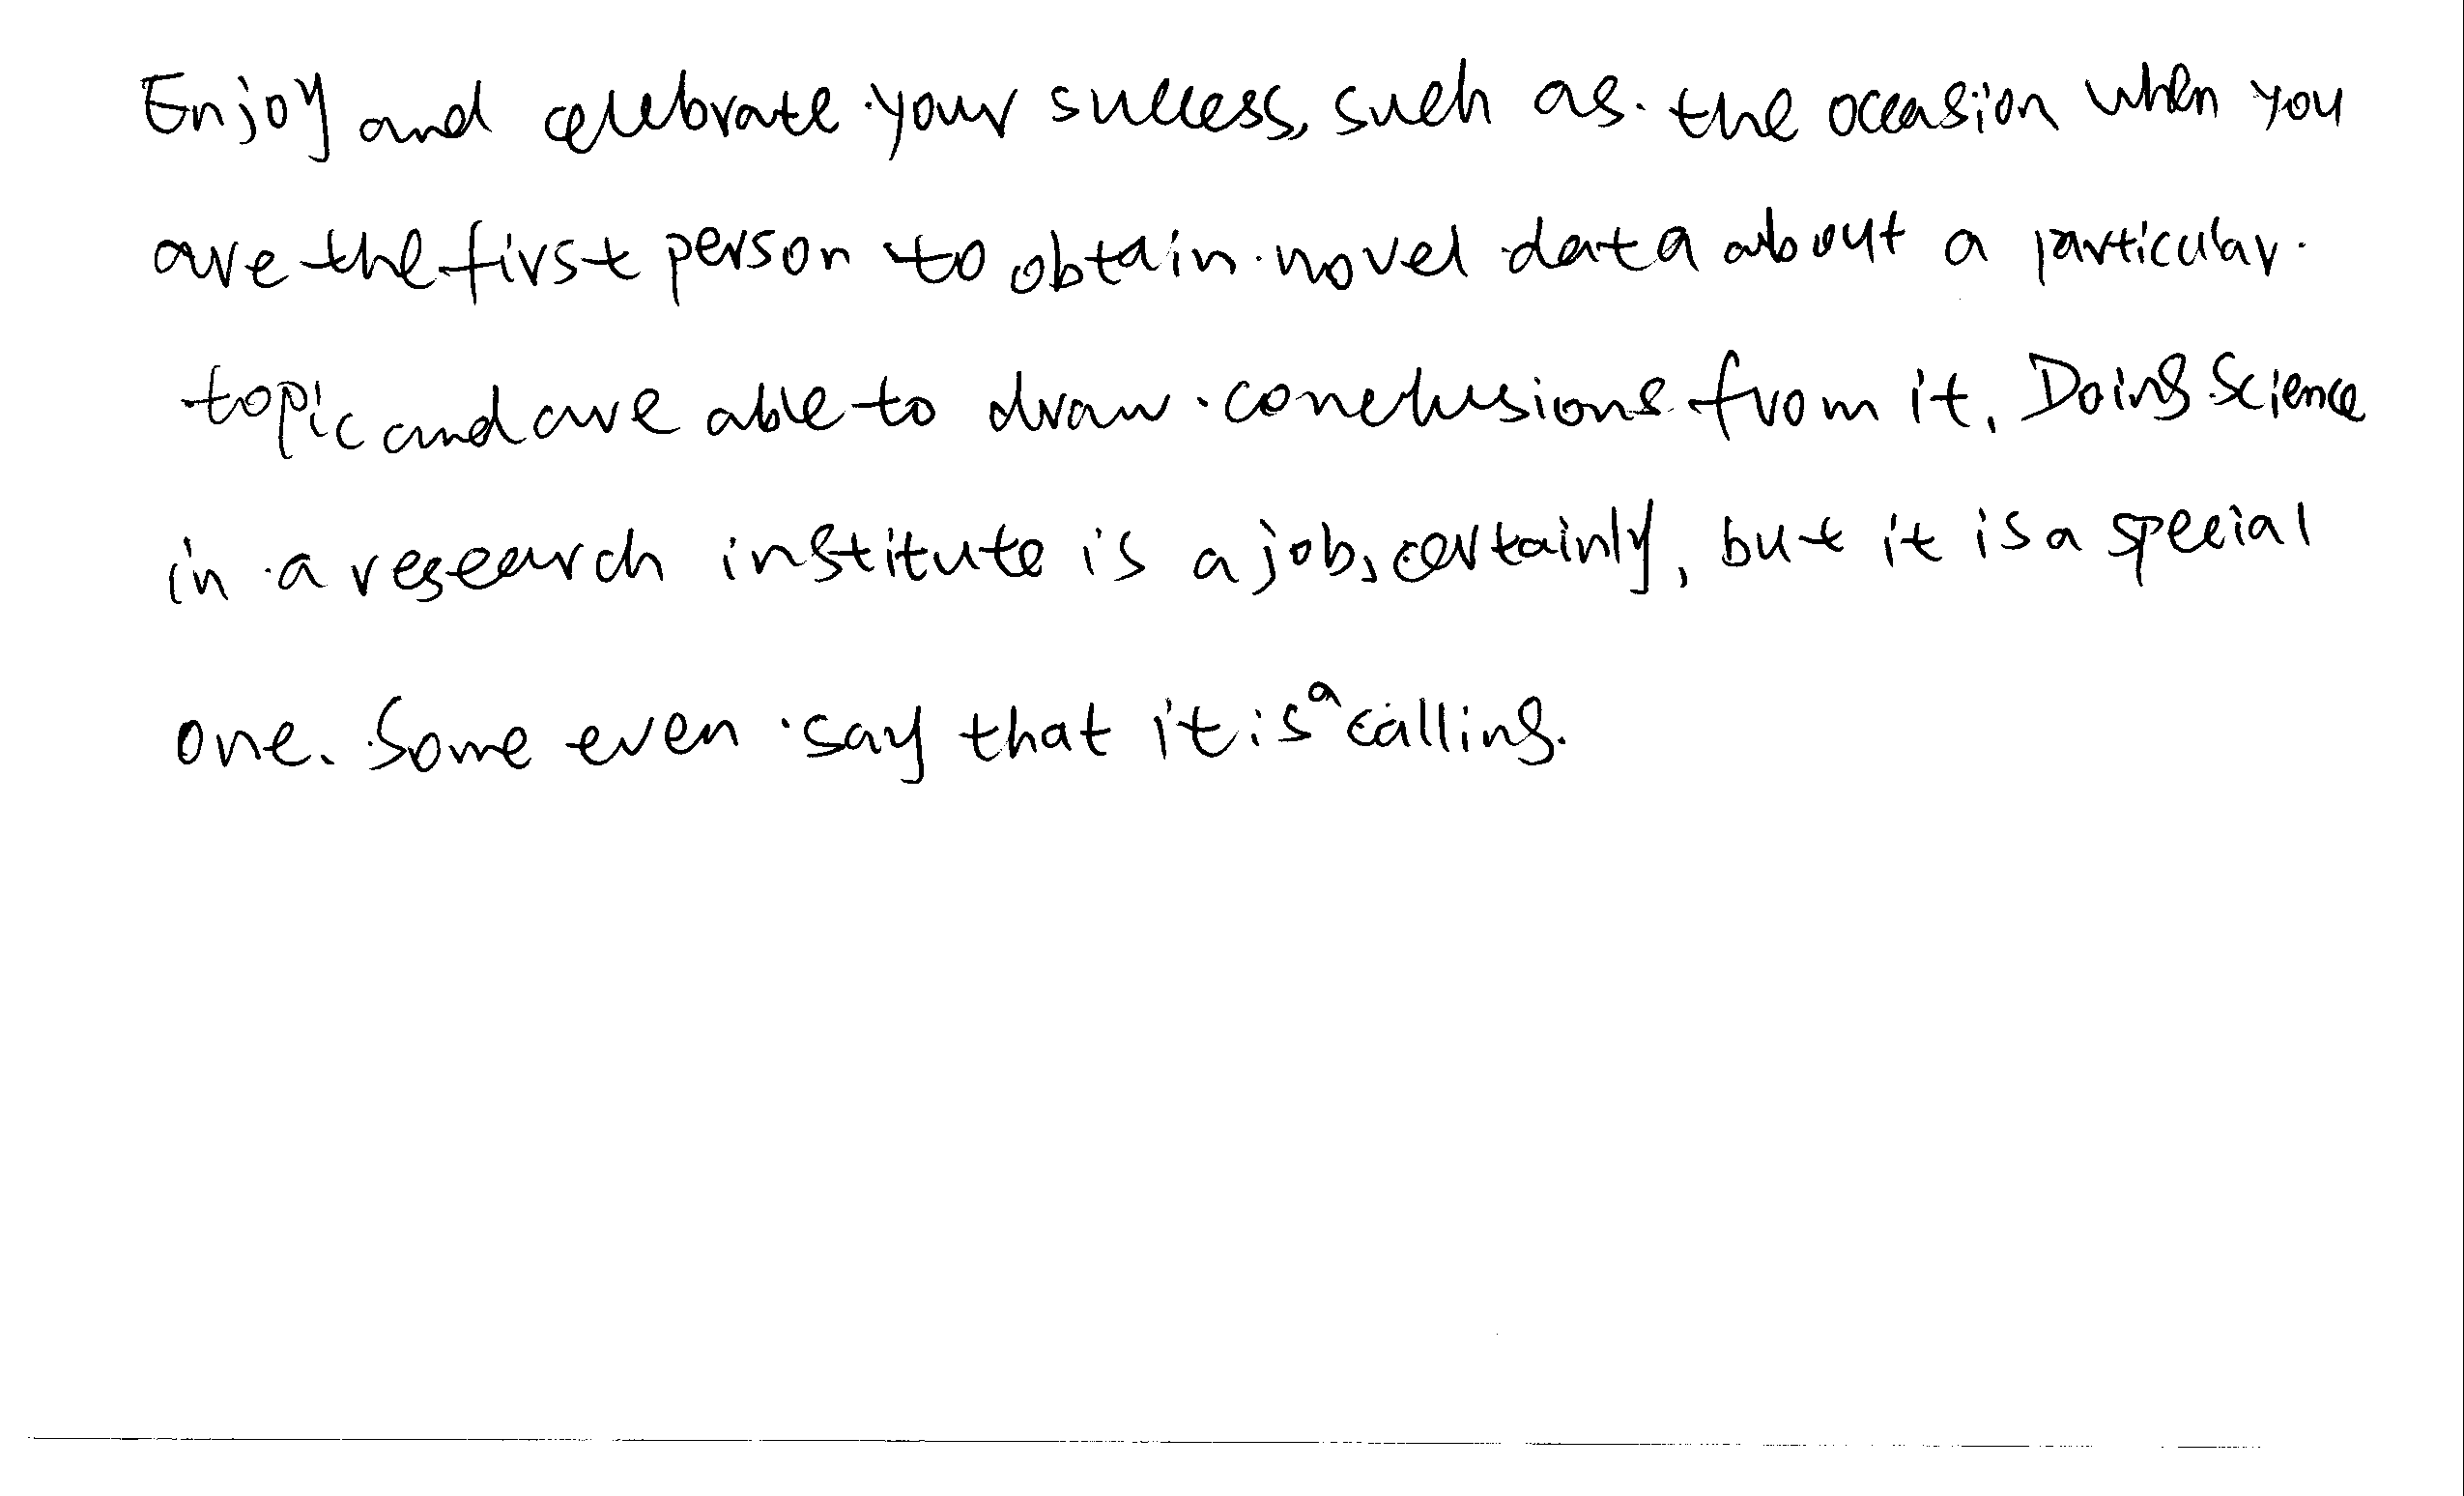 Enjoy and celebrate your success, such as the occasion when you
are the first person to obtain novel data about a particular
topic and are able to draw conclusions from it. Doing Science
in a research institute is a job, certainly, but it is a special
one. Some even say that it is a calling.